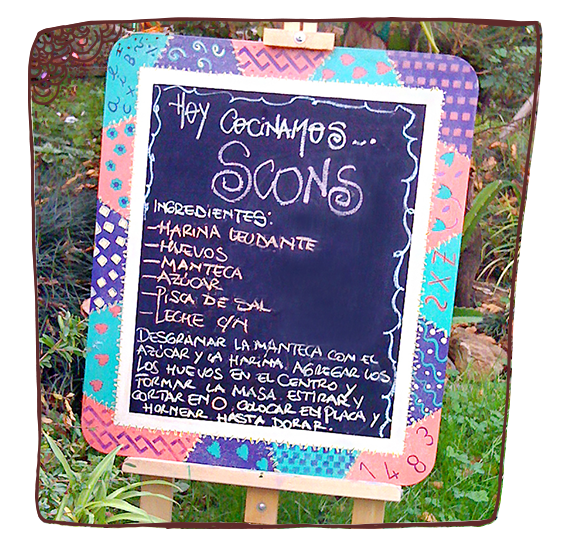 HOY COCINAMOS...
SCONS
INGREDIENTES:
-HARINA LEUDANTE
-HUEVOS
-MANTECA
-AZÚCAR
-PISCA DE SAL
-LECHE C/N
DESGRANAR LA MANTECA CON EL
AZÚCAR Y LA HARINA. AGREGAR LOS
LOS HUEVOS EN EL CENTRO Y
FORMAR LA MASA. ESTIRAR Y
CORTAR EN O. COLOCAR EN PLACA Y
HORNEAR HASTA DORAR.
1 4 8 3